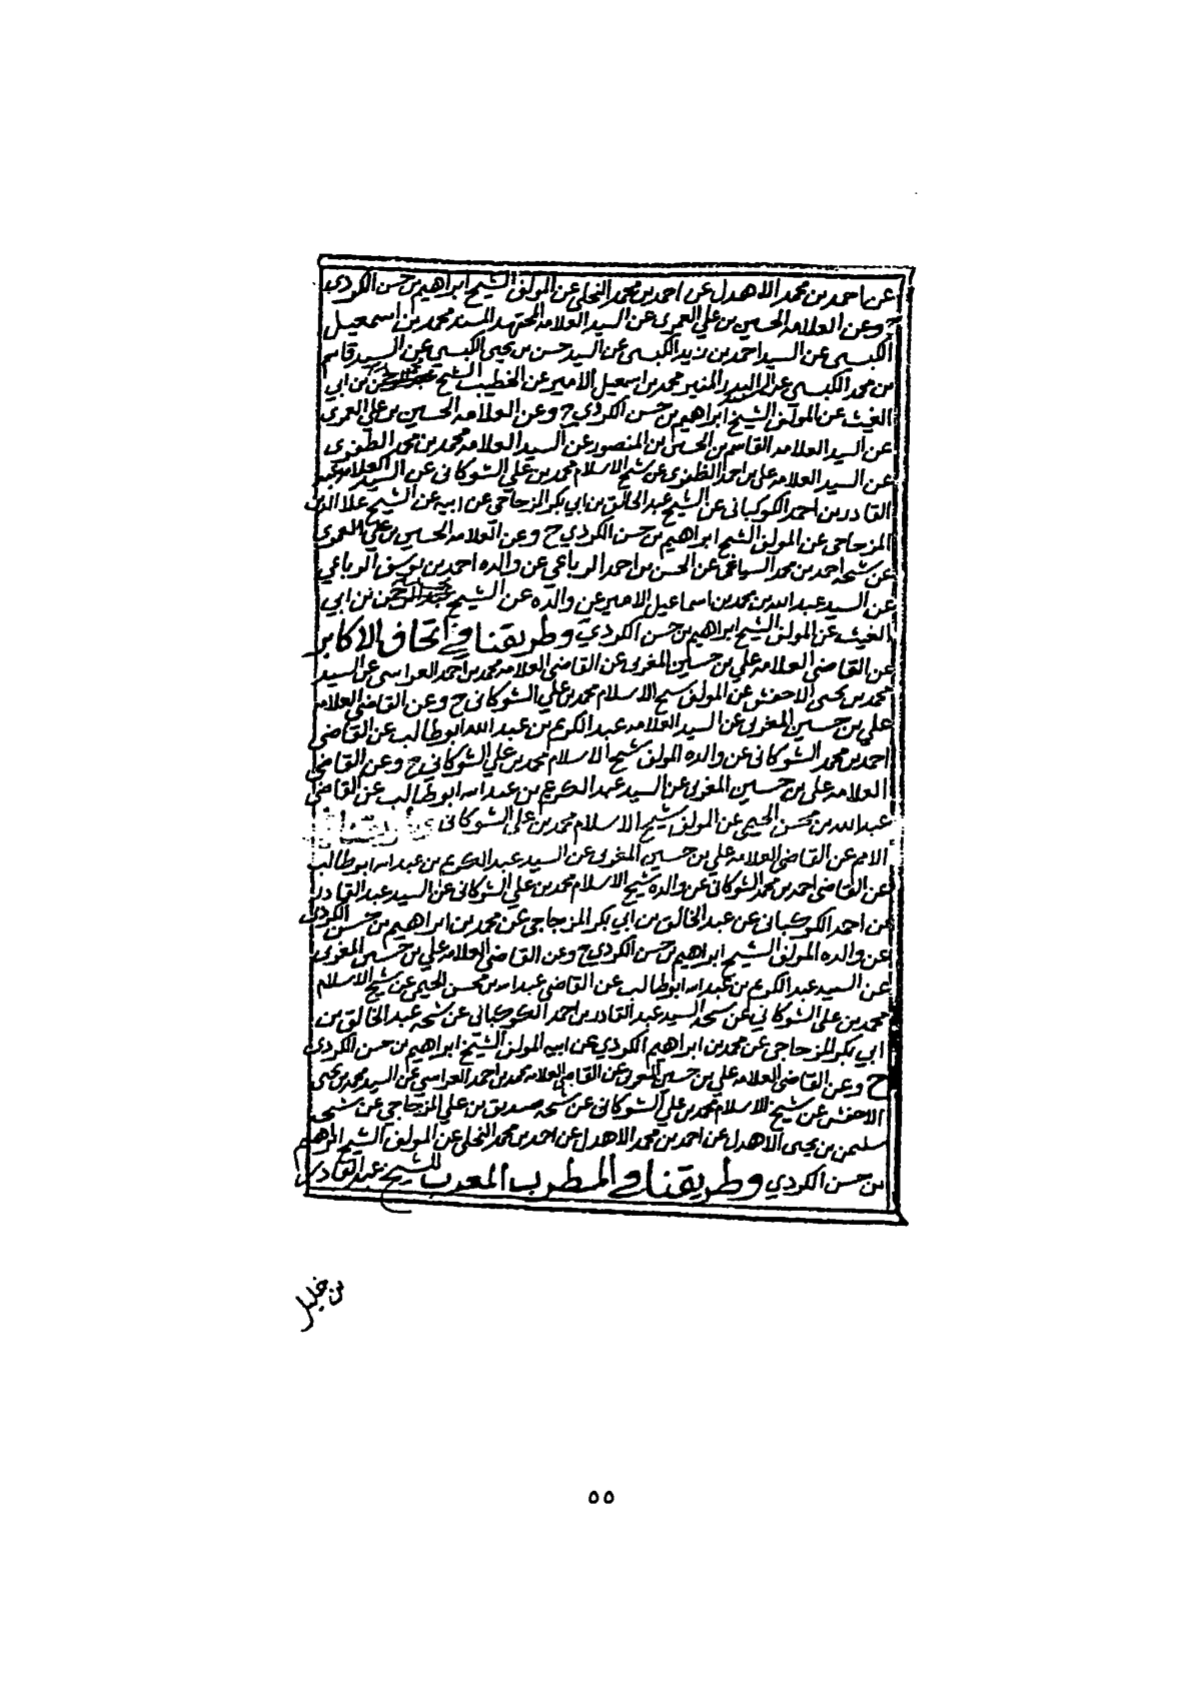 عن احمد بن محمد الاهدل عن احمد بن محمد النخلي عن المولف الشيخ ابراهيم بن حسن الكردي
ح وعن العلامه الحسين بن علي العمري عن السيد العلامه المجتهد المسند محمد بن اسمعيل
الكبسي عن السيد احمد بن زيد الكبسي عن السيد حسن بن يحيى الكبسي عن السيد قاسم
بن محمد الكبسي عن البدر المنير محمد بن اسمعيل الامير عن الخطيب الشيخ عبد الرحمن بن ابي
الغيث عن المولف الشيخ ابراهيم بن حسن الكردي ح وعن العلامه الحسين بن علي العمري
عن السيد العلامه القاسم بن الحسين بن المنصور عن السيد العلامه محمد بن محمد الظفري
عن السيد العلامه علي بن احمد الظفري عن شيخ الاسلام محمد بن علي الشوكاني عن السيد العلامه عبد
القادر بن احمد الكوكباني عن الشيخ عبد الخالق بن ابي بكر المزجاجي عن ابيه عن الشيخ علا الدين
المزجاجي عن المولف الشيخ ابراهيم بن حسن الكردي ح وعن العلامه الحسين بن علي العمري
عن شيخه احمد بن محمد السياغي عن الحسن بن احمد الرباعي عن والده احمد بن يوسف الرباعي
عن السيد عبد الله بن محمد بن اسماعيل الامير عن والده عن الشيخ عبد الرحمن بن ابي
الغيث عن المولف الشيخ ابراهيم بن حسن الكردي وطريقنا في اتحاف الاكابر
عن القاضي العلامه علي بن حسين المغربي عن القاضي العلامه محمد بن احمد العراسي عن السيد
محمد بن يحيى الاخفش عن المولف شيخ الاسلام محمد بن علي الشوكاني ح وعن القاضي العلامه
علي بن حسين المغربي عن السيد العلامه عبد الكريم بن عبد الله ابو طالب عن القاضي
احمد بن محمد الشوكاني عن والده المولف شيخ الاسلام محمد بن علي الشوكاني ح وعن القاضي
العلامه علي بن حسين المغربي عن السيد عبد الكريم بن عبد الله ابو طالب عن القاضي
عبد الله بن محسن الحيمي عن المولف شيخ الاسلام محمد بن علي الشوكاني
الامم عن القاضي العلامه علي بن حسين المغربي عن السيد عبد الكريم بن عبد الله ابو طالب
عن القاضي احمد بن محمد الشوكاني عن والده شيخ الاسلام محمد بن علي الشوكاني عن السيد عبد القادر
بن احمد الكوكباني عن عبد الخالق بن ابي بكر المزجاجي عن محمد بن ابراهيم بن حسن الكردي
عن والده المولف الشيخ ابراهيم بن حسن الكردي ح وعن القاضي العلامه علي بن حسين المغربي
عن السيد عبد الكريم بن عبد الله ابو طالب عن القاضي عبد الله بن محسن الحيمي عن شيخ الاسلام
محمد بن علي الشوكاني عن شيخه السيد عبد القادر بن احمد الكوكباني عن شيخه عبد الخالق بن
ابي بكر المزجاجي عن محمد بن ابراهيم الكردي عن ابيه المولف الشيخ ابراهيم بن حسن الكردي
ح وعن القاضي العلامه علي بن حسين المغربي عن القاضي العلامه محمد بن احمد العراسي عن السيد محمد بن يحيى
الاخفش عن شيخ الاسلام محمد بن علي الشوكاني عن شيخه صديق بن علي المزجاجي عن شيخه
سليمن بن يحيى الاهدل عن احمد بن محمد الاهدل عن احمد بن محمد النخلي عن المولف الشيخ ابراهيم
بن حسن الكردي وطريقنا في المطرب المعرب للشيخ عبد القادر
بن خليل
٥٥